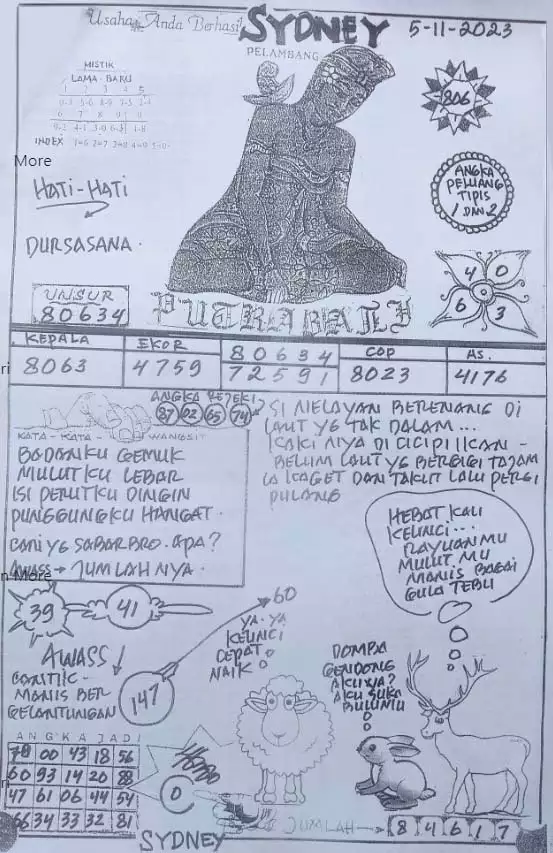 Usaha Anda Berhasil
SYDNEY
5-11-2023
PELAMBANG
MISTIK
LAMA - BARU
1 2 3 4 5
6 7 8 9 0
INDEX 1=6 2=7 3=8 4=9 5=0
More
806
ANGKA
PELUANG
TIPIS
1 DAN 2
HATI-HATI
DURSASANA.
UNSUR
80634
4 0
6 3
PUTRABALI
KEPALA
8063
EKOR
4759
80634
72591
COP
8023
AS.
4176
ANGKA REJEKI
87 02 65 74
KATA - KATA - WANGSIT
BADANKU GEMUK
MULUTKU LEBAR
ISI PERUTKU DINGIN
PUNGGUNGKU HANGAT.
CARI YG SABAR BRO. APA?
AWASS → JUMLAHNYA.
SI NELAYAN BERENANG DI
LAUT YG TAK DALAM...
KAKI NIYA DI CICIPI IKAN -
BELUM LAUT YG BERGIGI TAJAM
IA KAGET DAN TAKUT LALU PERGI
PULANG
HEBAT KAU
KELINCI...
RAYUANMU
MULUT MU
MANIS BAGAI
GULA TEBU
More
39
41
60
YA-YA
KELINCI
CEPAT
NAIK
AWASS
CANTIK-
MANIS BER
GELANTUNGAN
147
DOMBA
GENDONG
AKU YA?
AKU SUKA
BULUMU
ANGKA JADI
78 00 43 18 56
60 93 14 20 88
47 61 06 44 54
66 34 33 32 81
0
JUMLAH → 8 4 6 1 7
SYDNEY